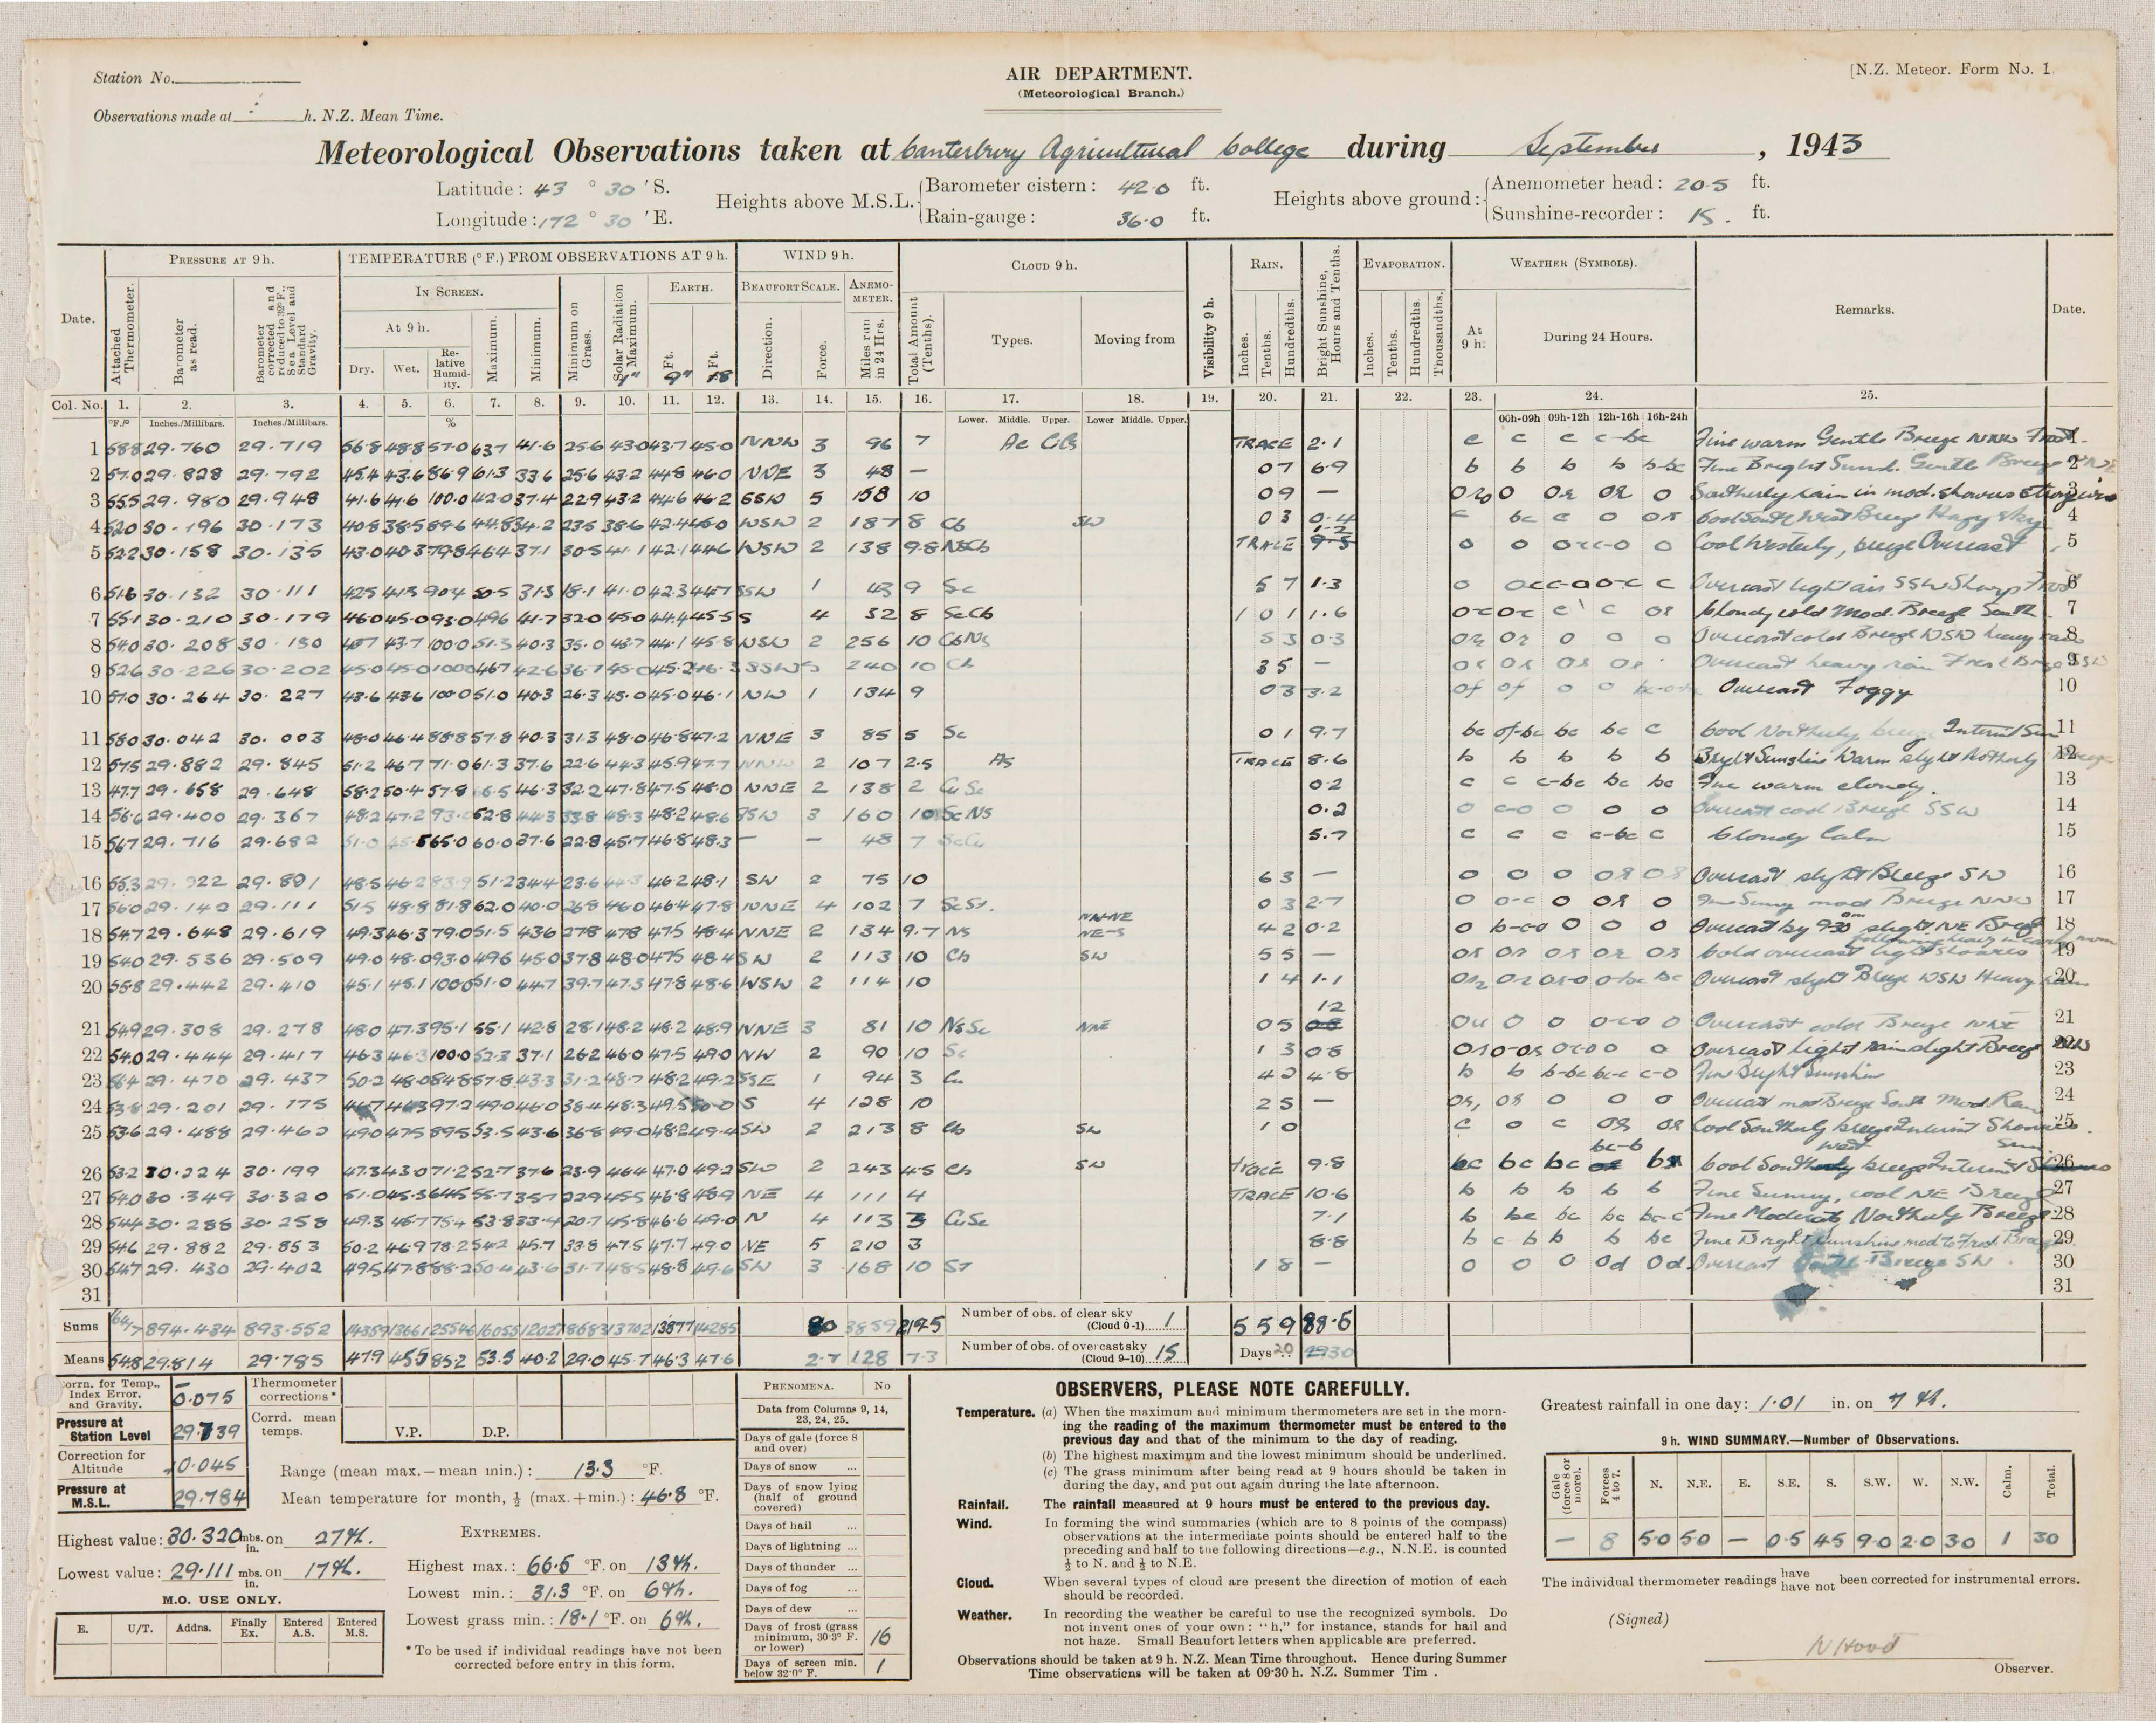 Station No.
AIR DEPARTMENT.
[N.Z. Meteor. Form No. 1.
(Meteorological Branch.)
Observations made at h. N.Z. Mean Time.
Meteorological Observations taken at Canterbury Agricultural College during September, 1943
Latitude: 43 ° 30 ′S. Heights above M.S.L. Barometer cistern: 42.0 ft. Heights above ground: Anemometer head: 20.5 ft.
Longitude: 172 ° 30 ′E. Rain-gauge: 36.0 ft. Sunshine-recorder: 15. ft.
Date. PRESSURE AT 9 h. TEMPERATURE (° F.) FROM OBSERVATIONS AT 9 h. WIND 9 h. CLOUD 9 h. Visibility 9 h. RAIN. Bright Sunshine, Hours and Tenths. EVAPORATION. WEATHER (SYMBOLS). Remarks. Date.
Attached Thermometer. Barometer as read. Barometer corrected and reduced to 32° F., Sea Level and Standard Gravity. IN SCREEN. At 9 h. Dry. Wet. Relative Humidity. Maximum. Minimum. Minimum on Grass. Solar Radiation Maximum. 4" EARTH. Ft. 9" Ft. 18 BEAUFORT SCALE. Direction. Force. ANEMOMETER. Miles run in 24 Hrs. Total Amount (Tenths). Types. Moving from Inches. Tenths. Hundredths. Inches. Tenths. Hundredths. Thousandths. At 9 h. During 24 Hours.
Col. No. 1. 2. 3. 4. 5. 6. 7. 8. 9. 10. 11. 12. 13. 14. 15. 16. 17. 18. 19. 20. 21. 22. 23. 24. 25.
°F./° Inches./Millibars. Inches./Millibars. % Lower. Middle. Upper. Lower Middle. Upper. 00h-09h 09h-12h 12h-16h 16h-24h
1 58.8 29.760 29.719 56.8 48.8 57.0 63.7 41.6 25.6 43.0 43.7 45.0 NNW 3 96 7 Ac TRACE 2.1 c c c c-bc Fine warm Gentle Breeze NNW Frost
2 57.0 29.828 29.792 45.4 43.6 86.9 61.3 33.6 25.6 43.2 44.8 46.0 NNE 3 48 — 07 6.9 b b b b b-bc Fine Bright Sund. Gentle Breeze 2
3 55.5 29.980 29.948 41.6 41.6 100.0 42.0 37.4 22.9 43.2 44.6 46.2 SSW 5 158 10 09 — Southerly rain in mod. showers strong wind 3
4 52.0 30.196 30.173 40.8 38.5 89.6 44.8 34.2 23.5 38.6 42.4 45.0 WSW 2 187 8 Cb SW 03 0.4 c bc c o Cool South West Breeze Hazy sky 4
5 52.2 30.158 30.135 43.0 40.3 79.8 46.4 37.1 30.5 41.1 42.1 44.6 WSW 2 138 9.8 NsCb TRACE 1.2 o o o Cool Westerly, breeze Overcast 5
6 51.6 30.132 30.111 42.5 41.3 90.4 50.5 31.3 18.1 41.0 42.3 44.7 SSW 1 43 9 Sc 57 1.3 o Overcast light air SSW Sharp Frost 6
7 55.1 30.210 30.179 46.0 45.0 93.0 49.6 41.7 32.0 45.0 44.4 45.5 S 4 32 8 ScCb 1 01 1.6 Cloudy cold Mod. Breeze South 7
8 54.0 30.208 30.180 43.7 100.0 51.3 40.3 35.0 43.7 44.1 45.8 WSW 2 256 10 CbNs 53 0.3 o o o Overcast cold Breeze WSW heavy rain 8
9 52.6 30.226 30.202 45.0 45.0 100.0 46.7 42.6 36.7 45.0 45.2 46.3 SSW 5 240 10 Cb 35 — Overcast heavy rain Fresh Breeze SSW 9
10 57.0 30.264 30.227 43.6 43.6 100.0 51.0 40.3 26.3 45.0 45.0 46.1 NW 1 134 9 03 3.2 of of o o Overcast Foggy 10
11 58.0 30.042 30.003 48.0 46.4 88.8 57.8 40.3 31.3 48.0 46.8 47.2 NNE 3 85 5 Sc 01 9.7 bc of-bc bc bc c Cool Northerly breeze Intermit Sun 11
12 57.5 29.882 29.845 51.2 46.7 71.0 61.3 37.6 22.6 44.3 45.9 47.7 NNW 2 107 2.5 As TRACE 8.6 b b b b b Bright Sunshine Warm slight Northerly 12
13 47.7 29.658 29.648 58.2 50.4 57.8 66.5 46.3 32.2 47.8 47.5 48.0 NNE 2 138 2 CuSc 0.2 c c c-bc bc bc Fine warm cloudy. 13
14 56.6 29.400 29.367 48.2 47.2 93.0 52.8 44.3 33.8 48.3 48.2 48.6 SSW 3 160 10 ScNS 0.2 o c-o o o o Overcast cool Breeze SSW 14
15 56.7 29.716 29.682 51.0 65.0 60.0 37.6 22.8 45.7 46.8 48.3 — — 48 7 ScCu 5.7 c c c c-bc c Cloudy Calm 15
16 55.3 29.922 29.891 48.5 46.2 83.9 51.2 34.4 23.6 44.3 46.2 48.1 SW 2 75 10 63 — o o o Overcast slight Breeze SW 16
17 56.0 29.142 29.111 51.5 48.8 81.8 62.0 40.0 26.8 46.0 46.4 47.8 NNE 4 102 7 ScSt. 03 2.7 o o-c o oR o Fine Sunny mod Breeze NNW 17
18 54.7 29.648 29.619 49.3 46.3 79.0 51.5 43.6 27.8 47.8 47.5 48.4 NNE 2 134 9.7 NS NW-NE NE-S 42 0.2 o b-co o o o Overcast by 930 am slight NE Breeze 18
19 54.0 29.536 29.509 49.0 48.0 93.0 49.6 45.0 37.8 48.0 47.5 48.4 SW 2 113 10 Cb SW 55 — Cold overcast light showers 19
20 55.8 29.442 29.410 45.1 45.1 100.0 51.0 44.7 39.7 47.3 47.8 48.6 WSW 2 114 10 14 1.1 Overcast slight Breeze WSW Heavy rain 20
21 54.9 29.308 29.278 48.0 47.3 95.1 55.1 42.8 28.1 48.2 48.2 48.9 NNE 3 81 10 NsSc NNE 05 1.2 o o o-c-o o Overcast cold Breeze NNE 21
22 54.0 29.444 29.417 46.3 46.3 100.0 52.3 37.1 26.2 46.0 47.5 49.0 NW 2 90 10 Sc 13 0.8 Overcast light rain slight Breeze NW 22
23 56.4 29.470 29.437 50.2 48.0 84.8 57.8 43.3 31.2 48.7 48.2 49.2 SSE 1 94 3 Cu 42 4.8 b b b-bc bc-c c-o Fine Bright Sunshine 23
24 53.8 29.201 29.175 46.7 46.3 97.2 49.0 46.0 38.4 48.3 49.5 50.0 S 4 128 10 25 — o o o Overcast mod Breeze South Mod. Rain 24
25 53.6 29.488 29.462 49.0 47.5 89.5 53.5 43.6 36.8 49.0 48.2 49.4 SW 2 213 8 Cb SW 10 c o c oR oR Cool Southerly breeze Intermit Showers. 25
26 53.2 30.224 30.199 47.3 43.0 71.2 52.7 37.6 23.9 46.4 47.0 49.2 SW 2 243 4.5 Cb SW trace 9.8 bc bc bc bc-b Cool South west breeze Intermit Sun 26
27 54.0 30.349 30.320 51.0 45.3 64.5 55.7 35.7 22.9 45.5 46.8 48.9 NE 4 111 4 TRACE 10.6 b b b b b Fine Sunny, cool NE Breeze 27
28 54.4 30.288 30.258 49.3 45.7 75.4 53.8 33.4 20.7 45.8 46.6 49.0 N 4 113 3 CuSc 7.1 b bc bc bc bc-c Fine Moderate Northerly Breeze 28
29 54.6 29.882 29.853 50.2 46.9 78.2 54.2 45.7 33.8 47.5 47.7 49.0 NE 5 210 3 8.8 b c-b b b bc Fine Bright Sunshine mod to Fresh Breeze 29
30 54.7 29.430 29.402 49.5 47.8 88.2 50.4 43.6 31.7 48.5 48.8 49.6 SW 3 168 10 ST 18 — o o o od od. Overcast South Breeze SW 30
31 31
Sums 894.434 893.552 14359 13661 25546 16055 12027 8683 13702 13877 14285 80 3859 219.5 Number of obs. of clear sky (Cloud 0-1) 1 5 59 88.5
Means 54.8 29.814 29.785 47.9 45.5 85.2 53.5 40.2 29.0 45.7 46.3 47.6 2.7 128 7.3 Number of obs. of overcast sky (Cloud 9-10) 15 Days 20
Corrn. for Temp., Index Error, and Gravity. -0.075 Thermometer corrections*
Pressure at Station Level 29.739 Corrd. mean temps. V.P. D.P.
Correction for Altitude +0.045
Pressure at M.S.L. 29.784
Range (mean max.—mean min.): 13.3 °F.
Mean temperature for month, ½ (max.+min.): 46.8 °F.
Highest value: 30.320 mbs. in. on 27th.
Lowest value: 29.111 mbs. in. on 17th.
EXTREMES.
Highest max.: 66.5 °F. on 13th.
Lowest min.: 31.3 °F. on 6th.
Lowest grass min.: 18.1 °F. on 6th.
M.O. USE ONLY.
E. U/T. Addns. Finally Ex. Entered A.S. Entered M.S.
* To be used if individual readings have not been
corrected before entry in this form.
PHENOMENA. No
Data from Columns 9, 14, 23, 24, 25.
Days of gale (force 8 and over)
Days of snow ...
Days of snow lying (half of ground covered)
Days of hail ...
Days of lightning ...
Days of thunder ...
Days of fog ...
Days of dew ...
Days of frost (grass minimum, 30·3° F. or lower) 16
Days of screen min. below 32·0° F. 1
OBSERVERS, PLEASE NOTE CAREFULLY.
Temperature. (a) When the maximum and minimum thermometers are set in the morn-
ing the reading of the maximum thermometer must be entered to the
previous day and that of the minimum to the day of reading.
(b) The highest maximum and the lowest minimum should be underlined.
(c) The grass minimum after being read at 9 hours should be taken in
during the day, and put out again during the late afternoon.
Rainfall. The rainfall measured at 9 hours must be entered to the previous day.
Wind. In forming the wind summaries (which are to 8 points of the compass)
observations at the intermediate points should be entered half to the
preceding and half to the following directions—e.g., N.N.E. is counted
½ to N. and ½ to N.E.
Cloud. When several types of cloud are present the direction of motion of each
should be recorded.
Weather. In recording the weather be careful to use the recognized symbols. Do
not invent ones of your own: "h," for instance, stands for hail and
not haze. Small Beaufort letters when applicable are preferred.
Observations should be taken at 9 h. N.Z. Mean Time throughout. Hence during Summer
Time observations will be taken at 09·30 h. N.Z. Summer Tim .
Greatest rainfall in one day: 1.01 in. on 7th.
9 h. WIND SUMMARY.—Number of Observations.
Gale (force 8 or more). Forces 4 to 7. N. N.E. E. S.E. S. S.W. W. N.W. Calm. Total.
— 8 5.0 5.0 — 0.5 4.5 9.0 2.0 3.0 1 30
The individual thermometer readings have have not been corrected for instrumental errors.
(Signed)
N Hood
Observer.